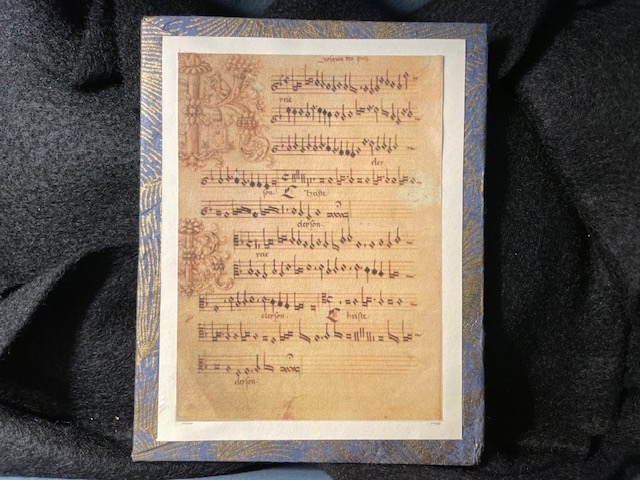 Kyrie
eley
son. Christe
eleyson.
Kyrie
eleyson. Christe
eleyson.